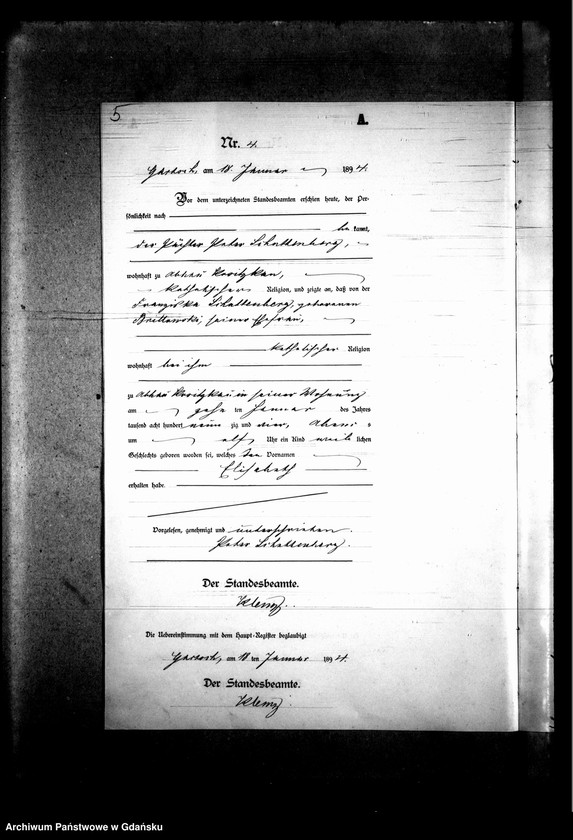 5
A.
Nr. 4.
am 18. Januar 1894.
Vor dem unterzeichneten Standesbeamten erschien heute, der Per-
sönlichkeit nach
be kannt,
der Pächter Peter Schattenberg,
wohnhaft zu Abbau
katholischer Religion, und zeigte an, daß von der
Franziska Schattenberg, geborenen
seiner Ehefrau,
katholischer Religion
wohnhaft bei ihm
zu Abbau in seiner Wohnung
am zehn ten Januar des Jahres
tausend acht hundert neun zig und vier, Abend s
um elf Uhr ein Kind weib lichen
Geschlechts geboren worden sei, welches den Vornamen
Elisabeth
erhalten habe.
Vorgelesen, genehmigt und unterschrieben.
Peter Schattenberg.
Der Standesbeamte.
Die Uebereinstimmung mit dem Haupt-Register beglaubigt
am 18 ten Januar 1894.
Der Standesbeamte.
Archiwum Państwowe w Gdańsku